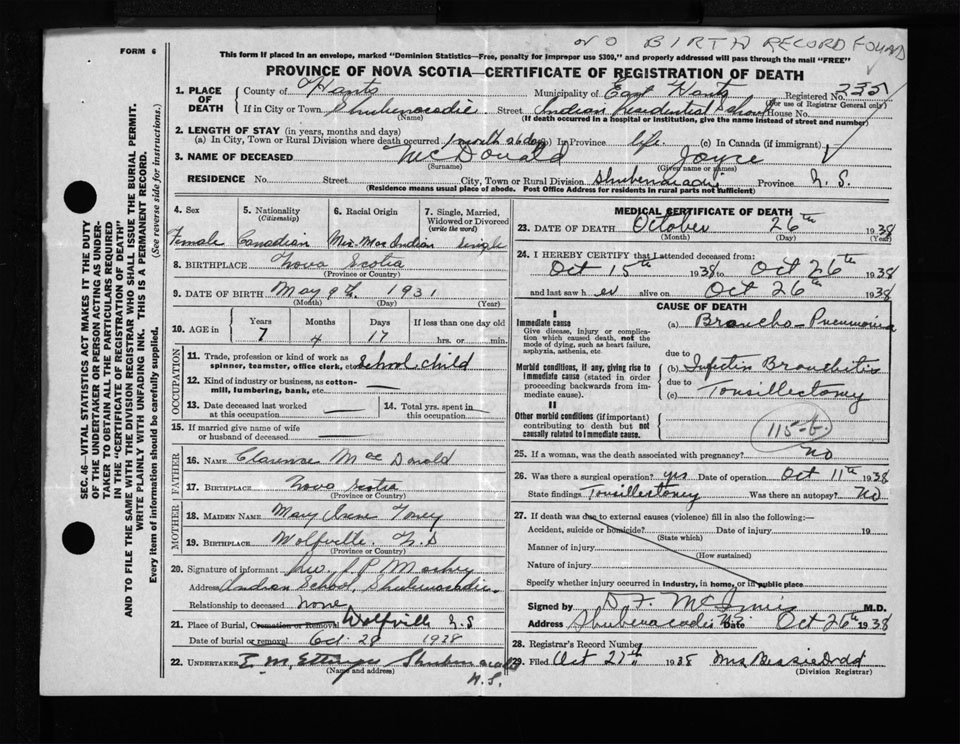 NO BIRTH RECORD FOUND
FORM 6
This form if placed in an envelope, marked "Dominion Statistics—Free, penalty for improper use $300," and properly addressed will pass through the mail "FREE"
PROVINCE OF NOVA SCOTIA—CERTIFICATE OF REGISTRATION OF DEATH
1. PLACE OF DEATH
County of Hants Municipality of East Hants Registered No. 335
(For use of Registrar General only)
If in City or Town Shubenacadie Street Indian Residential School House No.
(Name) (If death occurred in a hospital or institution, give the name instead of street and number)
2. LENGTH OF STAY (in years, months and days)
(a) In City, Town or Rural Division where death occurred 1 month 26 days (b) In Province life. (c) In Canada (if immigrant)
3. NAME OF DECEASED McDonald Joyce
(Surname) (Given name or names)
RESIDENCE No. Street City, Town or Rural Division Shubenacadie Province N.S.
(Residence means usual place of abode. Post Office Address for residents in rural parts not sufficient)
4. Sex
5. Nationality (Citizenship)
6. Racial Origin
7. Single, Married, Widowed or Divorced (write the word)
Female Canadian Mic Mac Indian single
8. BIRTHPLACE Nova Scotia
(Province or Country)
9. DATE OF BIRTH May 9th 1931
(Month) (Day) (Year)
10. AGE in
Years Months Days If less than one day old
7 4 17 hrs. or min.
OCCUPATION
11. Trade, profession or kind of work as spinner, teamster, office clerk, etc. School child
12. Kind of industry or business, as cotton-mill, lumbering, bank, etc.
13. Date deceased last worked at this occupation
14. Total yrs. spent in this occupation
15. If married give name of wife or husband of deceased
FATHER
16. NAME Clarence Mac Donald
17. BIRTHPLACE Nova Scotia
(Province or Country)
MOTHER
18. MAIDEN NAME Mary Irene Toney
19. BIRTHPLACE Wolfville N.S
(Province or Country)
20. Signature of informant Rev. J.P. Mackey
Address Indian School, Shubenacadie
Relationship to deceased none
21. Place of Burial, Cremation or Removal Wolfville N.S
Date of burial or removal Oct. 28 1938
22. UNDERTAKER E. M. Ettinger Shubenacadie N.S.
(Name and address)
MEDICAL CERTIFICATE OF DEATH
23. DATE OF DEATH October 26th 1938
(Month) (Day) (Year)
24. I HEREBY CERTIFY that I attended deceased from:
Oct 15th 1938 to Oct 26th 1938
and last saw h er alive on Oct 26th 1938
CAUSE OF DEATH
I
Immediate cause
Give disease, injury or complication which caused death, not the mode of dying, such as heart failure, asphyxia, asthenia, etc.
(a) Broncho-Pneumonia
due to
Morbid conditions, if any, giving rise to immediate cause (stated in order proceeding backwards from immediate cause).
(b) Infectin Bronchitis
due to
(c) Tonsillectomy
II
Other morbid conditions (if important) contributing to death but not causally related to immediate cause.
115-b.
25. If a woman, was the death associated with pregnancy? no
26. Was there a surgical operation? yes Date of operation Oct 11th 1938
State findings Tonsillectomy Was there an autopsy? No
27. If death was due to external causes (violence) fill in also the following:—
Accident, suicide or homicide? Date of injury 19
(State which)
Manner of injury
(How sustained)
Nature of injury
Specify whether injury occurred in industry, in home, or in public place
Signed by D. F. McInnis M.D.
Address Shubenacadie N.S. Date Oct 26th 1938
28. Registrar's Record Number
29. Filed Oct 27th 1938 Mrs Bessie Dodd
(Division Registrar)
SEC. 46—VITAL STATISTICS ACT MAKES IT THE DUTY
OF THE UNDERTAKER OR PERSON ACTING AS UNDER-
TAKER TO OBTAIN ALL THE PARTICULARS REQUIRED
IN THE "CERTIFICATE OF REGISTRATION OF DEATH"
AND TO FILE THE SAME WITH THE DIVISION REGISTRAR WHO SHALL ISSUE THE BURIAL PERMIT.
WRITE PLAINLY WITH UNFADING INK. THIS IS A PERMANENT RECORD.
Every item of information should be carefully supplied. (See reverse side for instructions.)